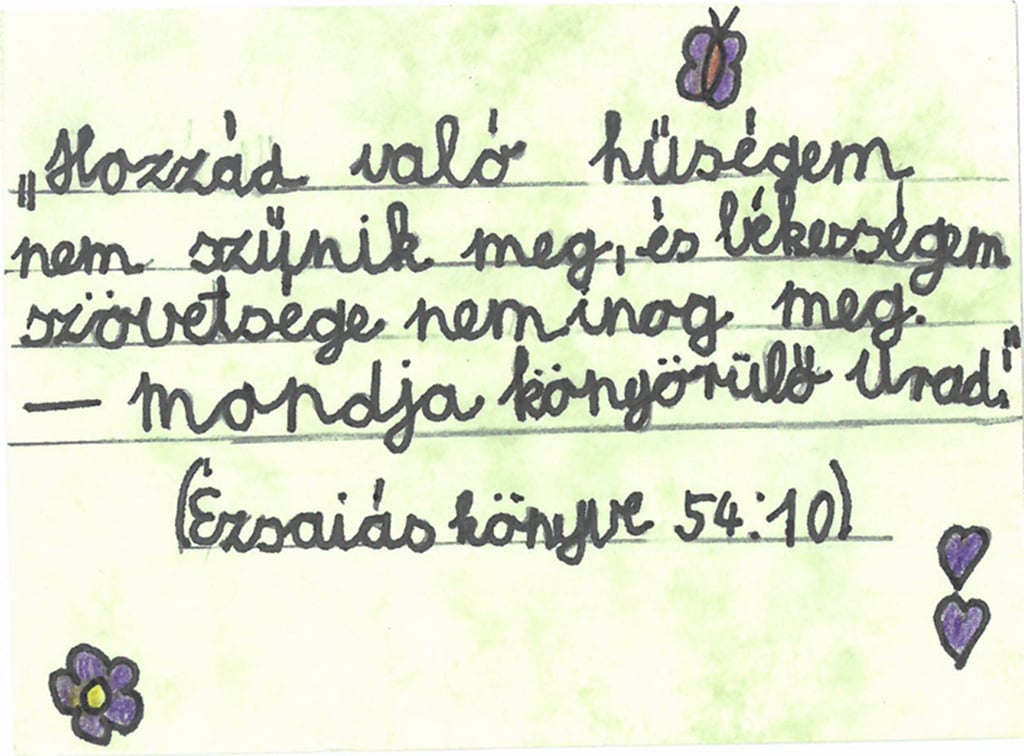 „Hozzád való hűségem
nem szűnik meg, és békességem
szövetsége nem inog meg.
— mondja könyörülő Urad."
(Ézsaiás könyve 54:10)